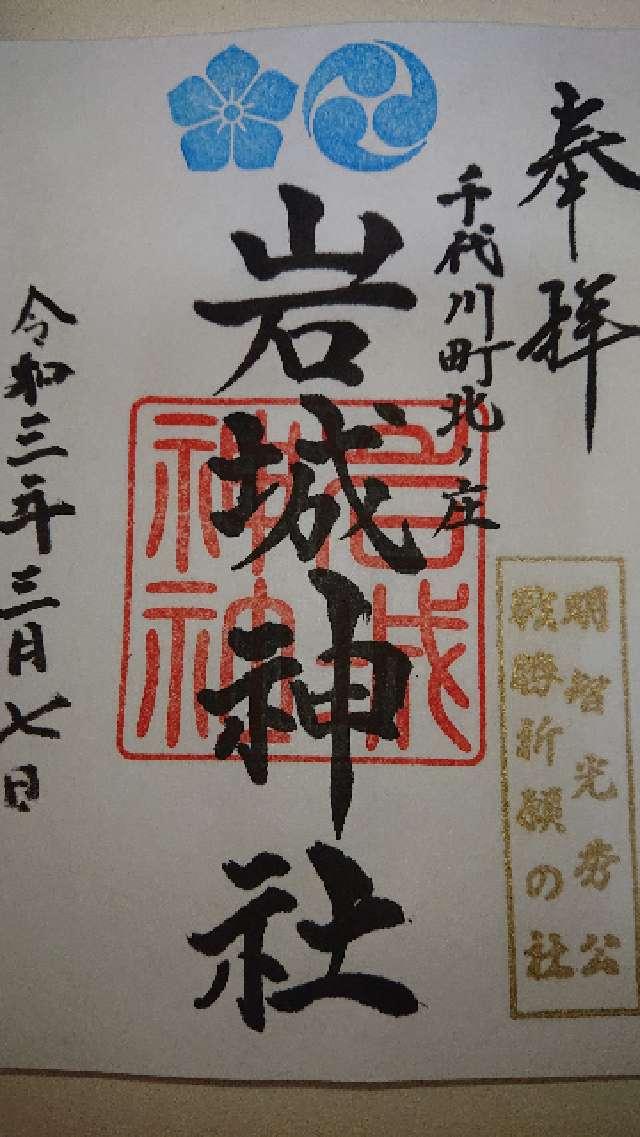 奉拝
千代川町北ノ庄
岩城神社
明智光秀公
戦勝祈願の社
令和三年三月七日